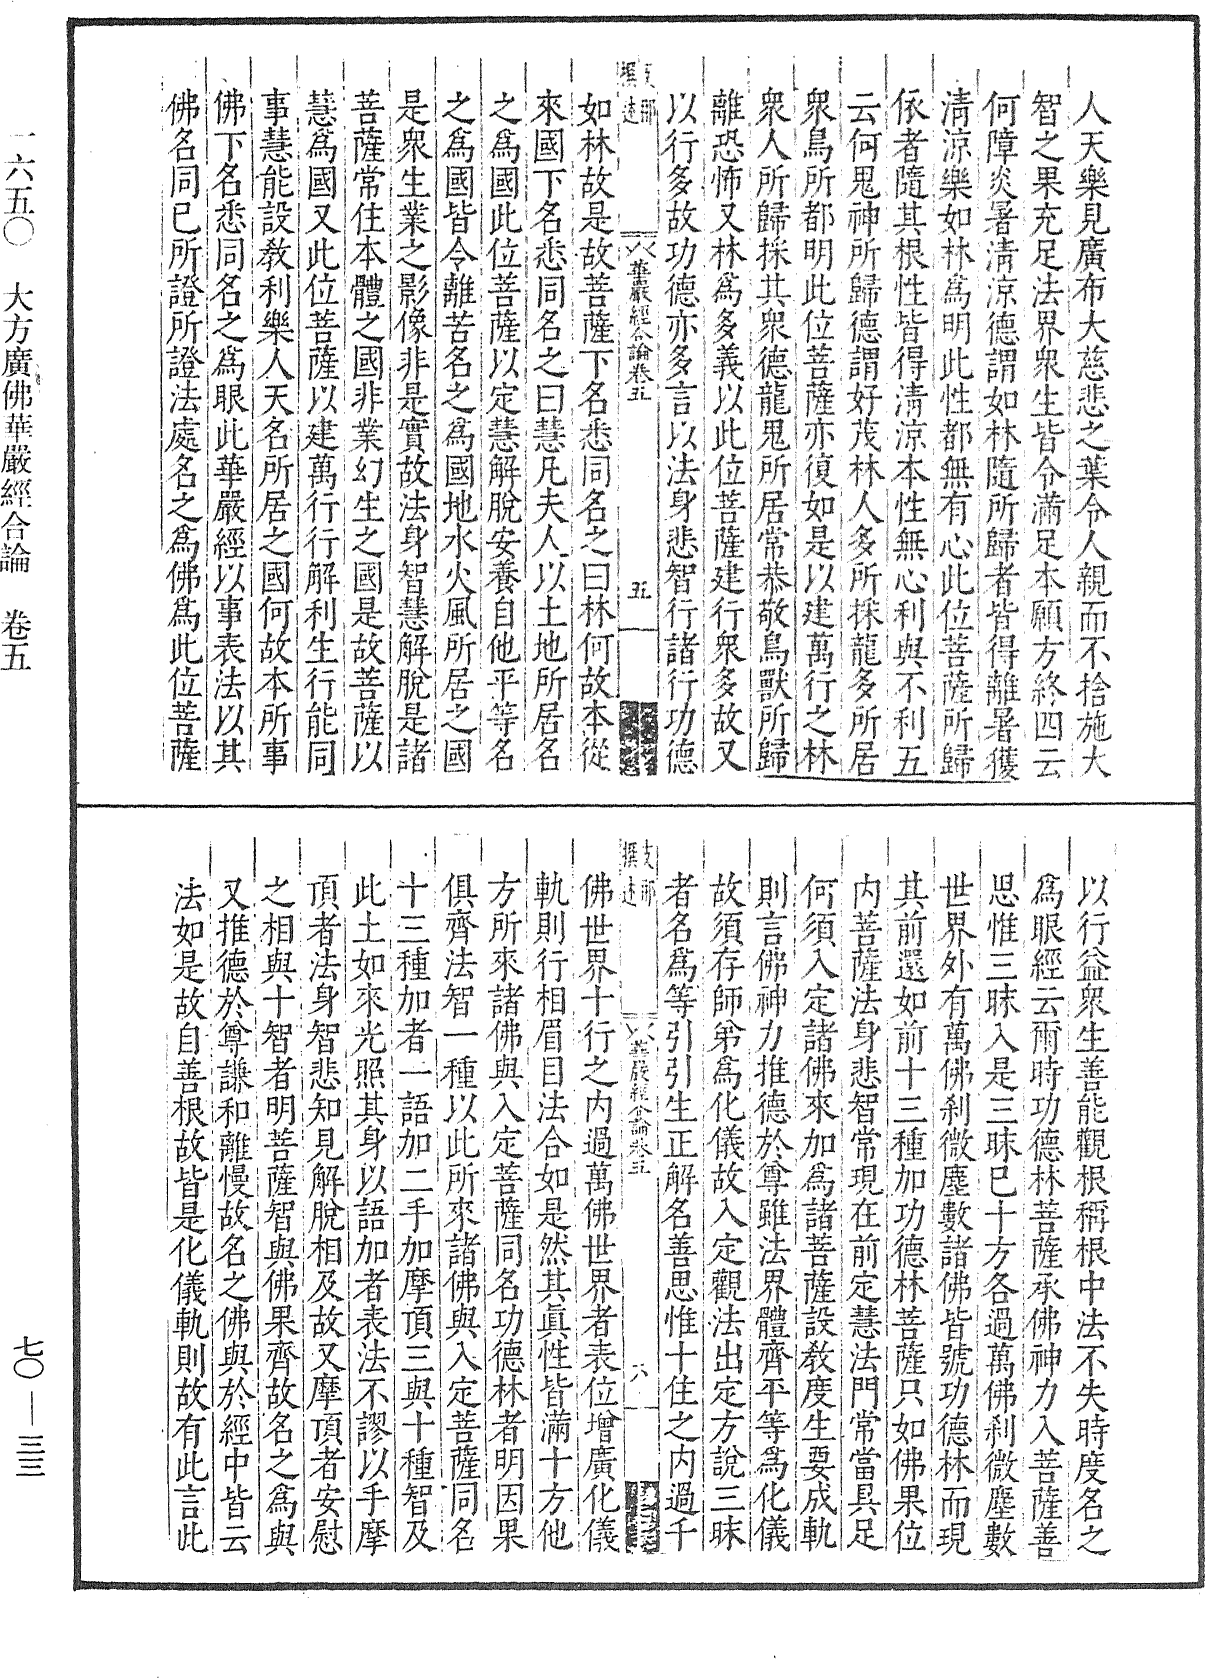 人天樂見廣布大慈悲之葉令人親而不捨施大
智之果充足法界衆生皆令滿足本願方終四云
何障炎暑淸涼德謂如林隨所歸者皆得離暑獲
淸涼樂如林爲明此性都無有心此位菩薩所歸
依者隨其根性皆得淸涼本性無心利與不利五
云何鬼神所歸德謂好茂林人多所採龍多所居
衆鳥所都明此位菩薩亦復如是以建萬行之林
衆人所歸採其衆德龍鬼所居常恭敬鳥獸所歸
離恐怖又林爲多義以此位菩薩建行衆多故又
以行多故功德亦多言以法身悲智行諸行功德
支那撰述
華嚴經合論卷五
五
如林故是故菩薩下名悉同名之曰林何故本從
來國下名悉同名之曰慧凡夫人以土地所居名
之爲國此位菩薩以定慧解脫安養自他平等名
之爲國皆令離苦名之爲國地水火風所居之國
是衆生業之影像非是實故法身智慧解脫是諸
菩薩常住本體之國非業幻生之國是故菩薩以
慧爲國又此位菩薩以建萬行行解利生行能同
事慧能設教利樂人天名所居之國何故本所事
佛下名悉同名之爲眼此華嚴經以事表法以其
佛名同已所證所證法處名之爲佛爲此位菩薩
以行益衆生善能觀根稱根中法不失時度名之
爲眼經云爾時功德林菩薩承佛神力入菩薩善
思惟三昧入是三昧已十方各過萬佛刹微塵數
世界外有萬佛刹微塵數諸佛皆號功德林而現
其前還如前十三種加功德林菩薩只如佛果位
內菩薩法身悲智常現在前定慧法門常當具足
何須入定諸佛來加爲諸菩薩設教度生要成軌
則言佛神力推德於尊雖法界體齊平等爲化儀
故須存師弟爲化儀故入定觀法出定方說三昧
者名爲等引引生正解名善思惟十住之內過千
支那撰述
華嚴經合論卷五
六
佛世界十行之內過萬佛世界者表位增廣化儀
軌則行相眉目法合如是然其眞性皆滿十方他
方所來諸佛與入定菩薩同名功德林者明因果
俱齊法智一種以此所來諸佛與入定菩薩同名
十三種加者一語加二手加摩頂三與十種智及
此土如來光照其身以語加者表法不謬以手摩
頂者法身智悲知見解脫相及故又摩頂者安慰
之相與十智者明菩薩智與佛果齊故名之爲與
又推德於尊謙和離慢故名之佛與於經中皆云
法如是故自善根故皆是化儀軌則故有此言此
一六五〇　大方廣佛華嚴經合論　卷五
七〇—三三